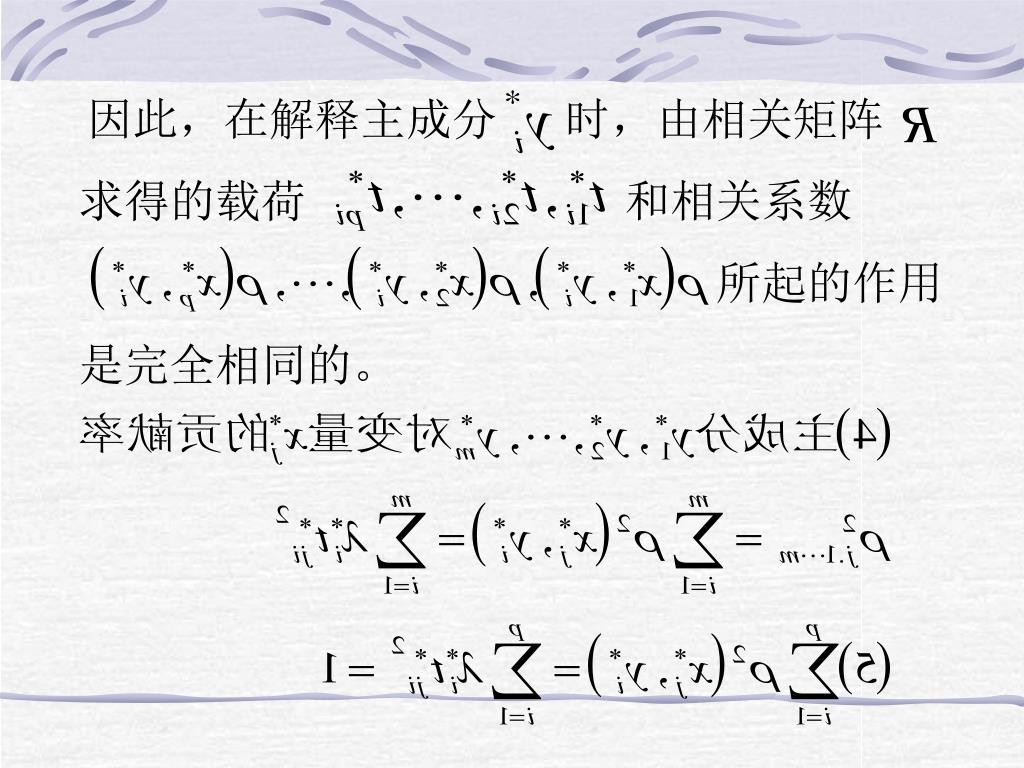 因此，在解释主成分 $y_i^*$ 时，由相关矩阵 $R$
求得的载荷 $t_{1i}^*, t_{2i}^*, \cdots, t_{pi}^*$ 和相关系数
$\rho(x_1^*, y_i^*), \rho(x_2^*, y_i^*), \cdots, \rho(x_p^*, y_i^*)$ 所起的作用
是完全相同的。
(4)主成分$y_1^*, y_2^*, \cdots, y_m^*$对变量$x_j^*$的贡献率
$\rho_{j.1\cdots m}^2 = \sum_{i=1}^{m} \rho^2(x_j^*, y_i^*) = \sum_{i=1}^{m} \lambda_i^* t_{ji}^{*2}$
(5)$\sum_{i=1}^{p} \rho^2(x_j^*, y_i^*) = \sum_{i=1}^{p} \lambda_i^* t_{ji}^{*2} = 1$